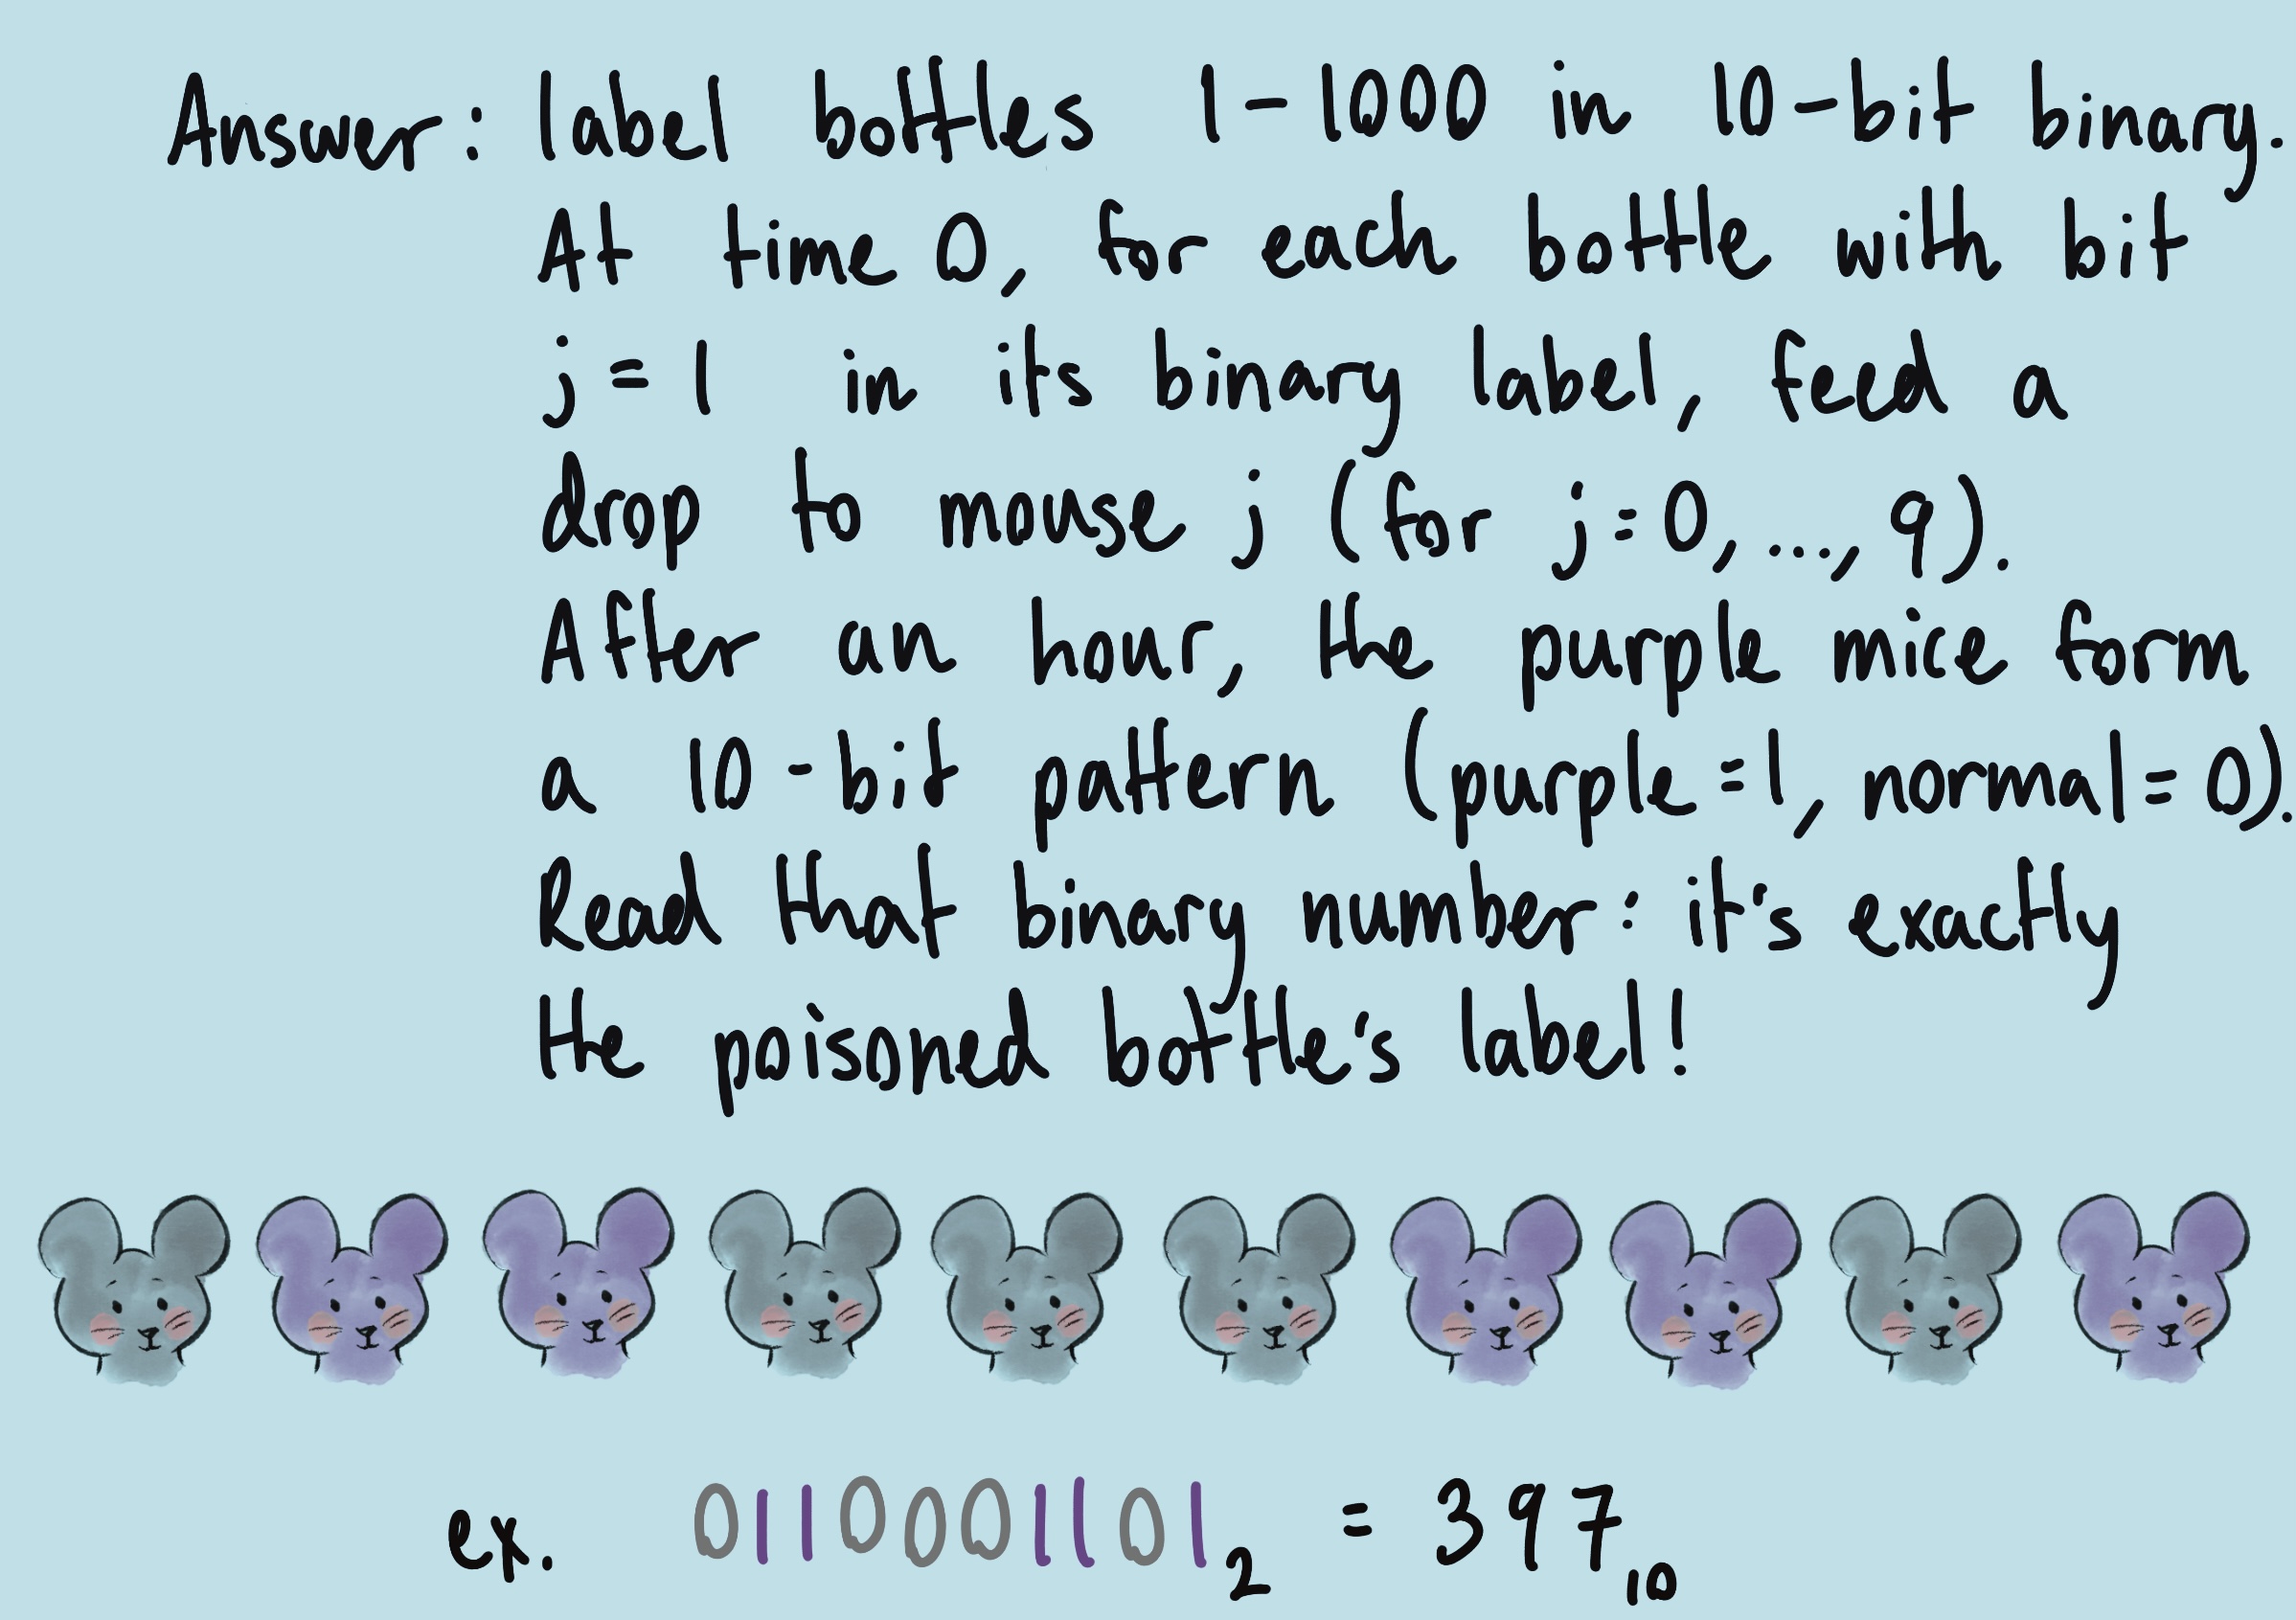 Answer: label bottles 1-1000 in 10-bit binary.
At time 0, for each bottle with bit
j = 1 in its binary label, feed a
drop to mouse j (for j=0,...,9).
After an hour, the purple mice form
a 10-bit pattern (purple=1, normal=0).
Read that binary number: it's exactly
the poisoned bottle's label!
ex. 0110001101₂ = 397₁₀